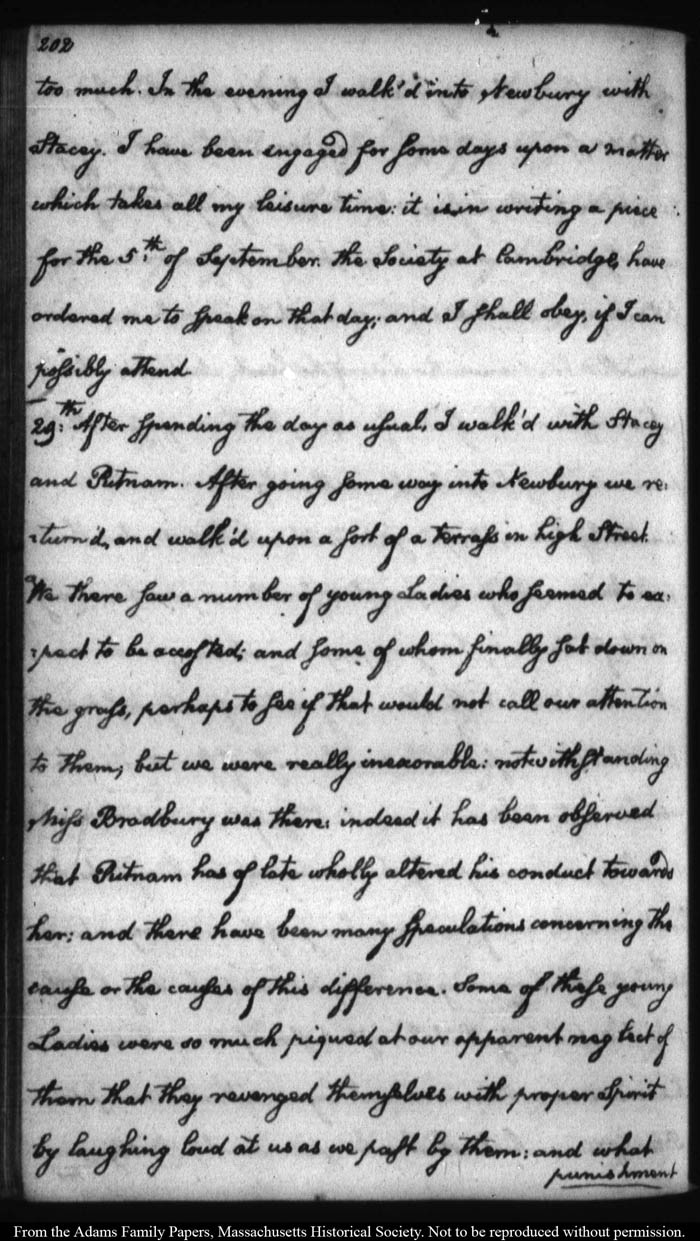 202
too much. In the evening I walk'd into Newbury with
Stacey. I have been engaged for some days upon a matter
which takes all my leisure time: it is in writing a piece
for the 5:th of September. the Society at Cambridge, have
ordered me to speak on that day; and I shall obey, if I can
possibly attend.
29:th After spending the day as usual, I walk'd with Stacey
and Putnam. After going some way into Newbury we re:
:turn'd, and walk'd upon a sort of a terrass in high Street.
We there saw a number of young Ladies who seemed to ex:
:pect to be accosted; and some of whom finally sat down on
the grass, perhaps to see if that would not call our attention
to them; but we were really inexorable: notwithstanding
Miss Bradbury was there: indeed it has been observed
that Putnam has of late wholly altered his conduct towards
her: and there have been many speculations concerning the
cause or the causes of this difference. Some of these young
Ladies were so much piqued at our apparent neglect of
them that they revenged themselves with proper Spirit
by laughing loud at us as we past by them: and what
punishment
From the Adams Family Papers, Massachusetts Historical Society. Not to be reproduced without permission.